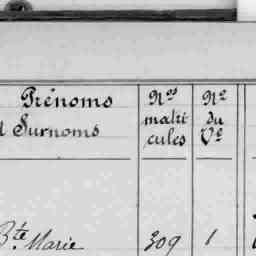 Prénoms
et Surnoms
Nos
matri
cules
No
du
Ve
Bte Marie
309
1